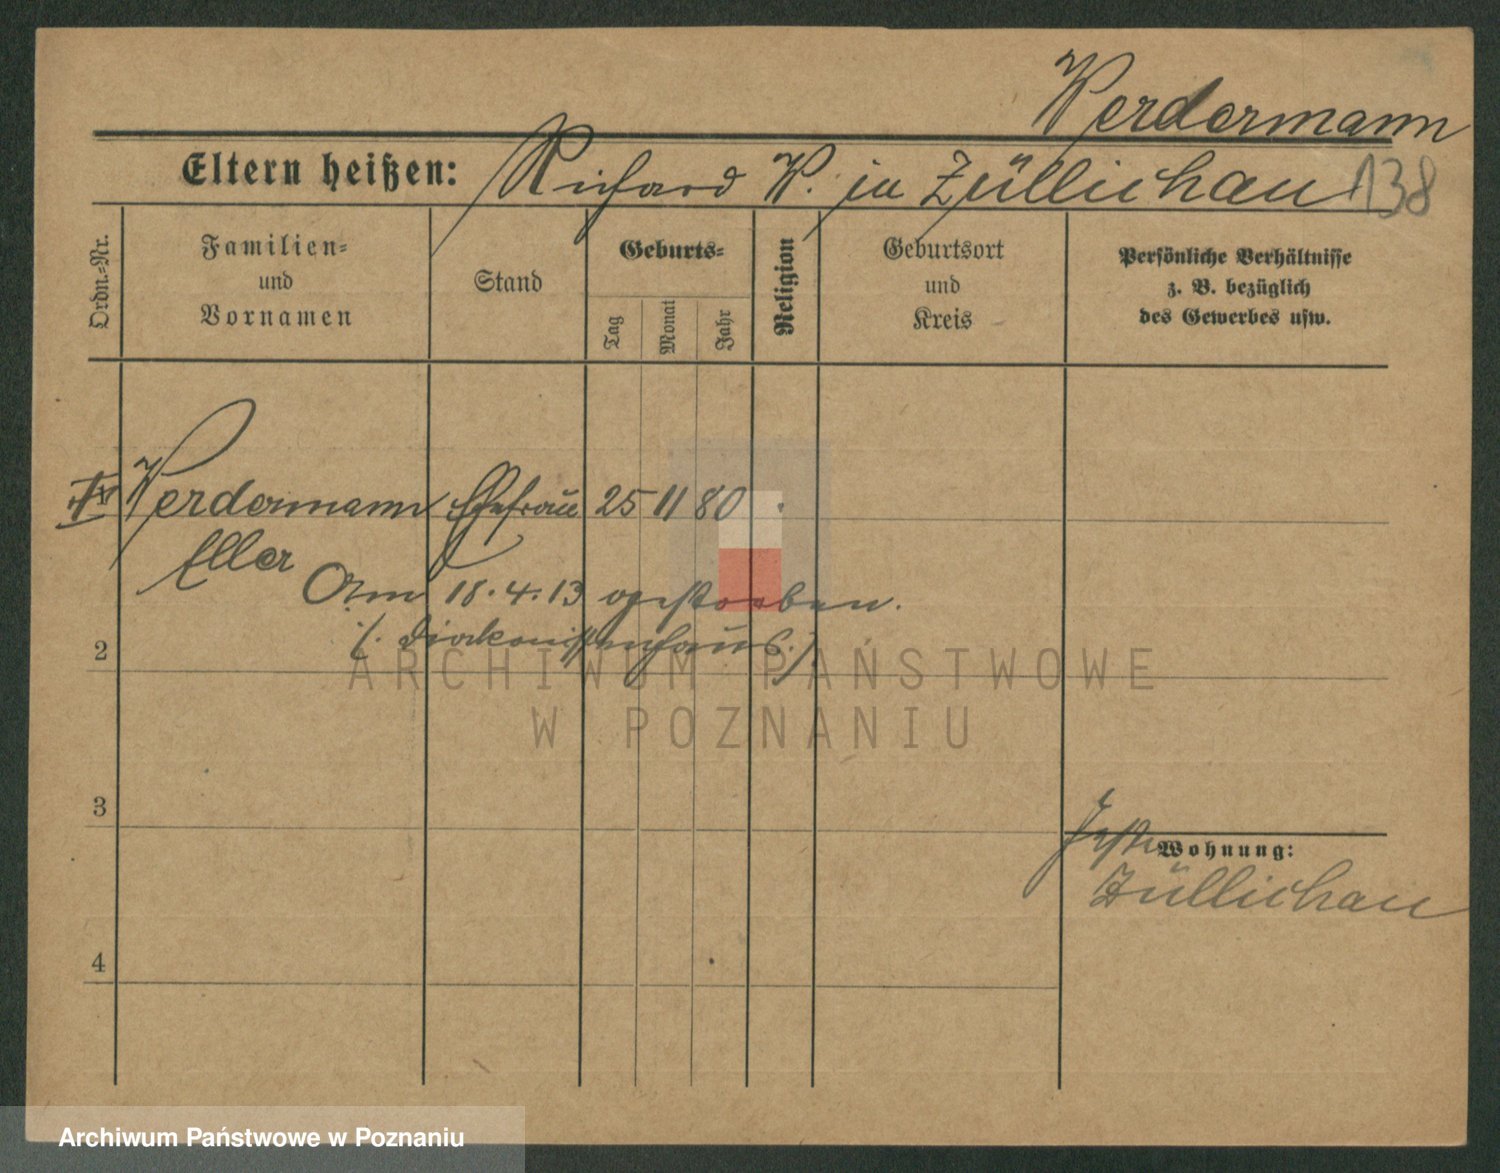 Werdermann
Eltern heißen: Richard W. in Züllichau 138
Ordn.-Nr.
Familien-
und
Vornamen
Stand
Geburts-
Tag
Monat
Jahr
Religion
Geburtsort
und
Kreis
Persönliche Verhältnisse
z. B. bezüglich
des Gewerbes usw.
Werdermann Ehefrau 25 11 80
Eller
Am 18.4.13 gestorben.
/. Diakonissenhaus ./
2
3
4
Wohnung:
Züllichau
ARCHIWUM PAŃSTWOWE
W POZNANIU
Archiwum Państwowe w Poznaniu